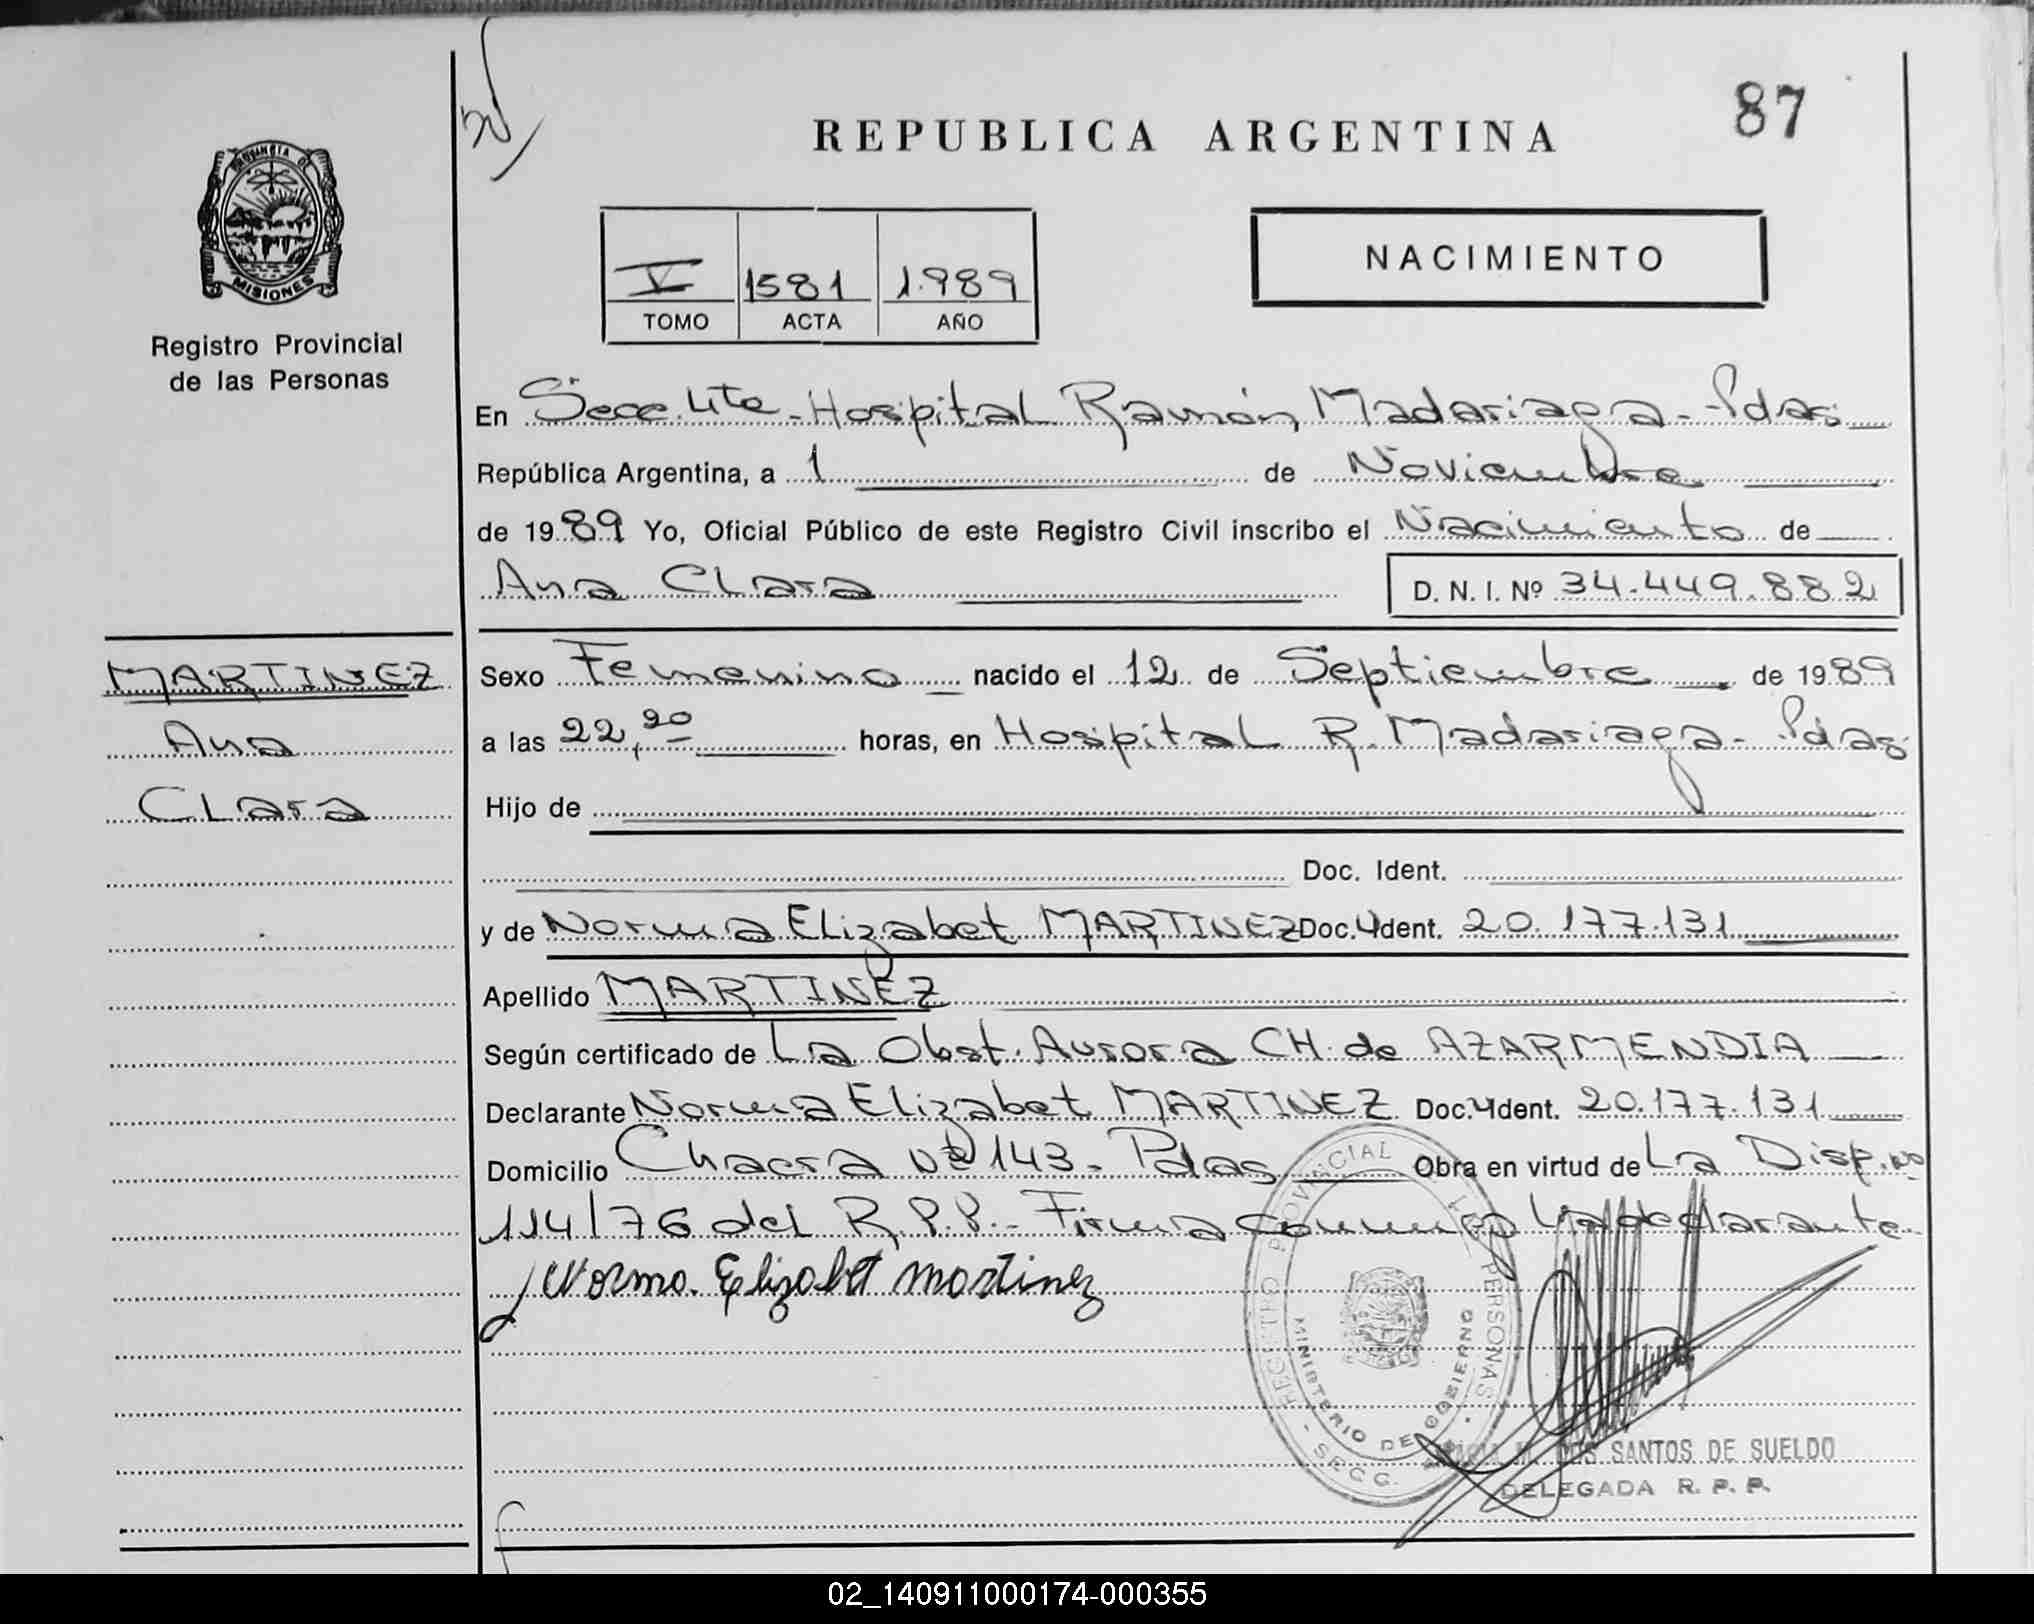 87
REPUBLICA ARGENTINA
PROVINCIA DE
MISIONES
Registro Provincial
de las Personas
NACIMIENTO
V 1581 1.989
TOMO ACTA AÑO
En Secc. 4ta - Hospital Ramón Madariaga - Pdas
República Argentina, a 1 de Noviembre
de 1989 Yo, Oficial Público de este Registro Civil inscribo el Nacimiento de
Ana Clara D. N. I. Nº 34.449.882
MARTINEZ
Ana
Clara
Sexo Femenino nacido el 12 de Septiembre de 1989
a las 22,20 horas, en Hospital R. Madariaga - Pdas
Hijo de
Doc. Ident.
y de Norma Elizabet MARTINEZ Doc. Ident. 20.177.131
Apellido MARTINEZ
Según certificado de La Obst. Aurora CH. de AZARMENDIA
Declarante Norma Elizabet MARTINEZ Doc. Ident. 20.177.131
Domicilio Chacra Nº 143 - Pdas Obra en virtud de La Disp. Nº
114/76 del R.P.P. - Firma conmigo la declarante
Norma Elizabet Martinez
REGISTRO PROVINCIAL PERSONAS
MINISTERIO DE GOBIERNO
SECC.
MARIA M. DOS SANTOS DE SUELDO
DELEGADA R. P. P.
02_140911000174-000355